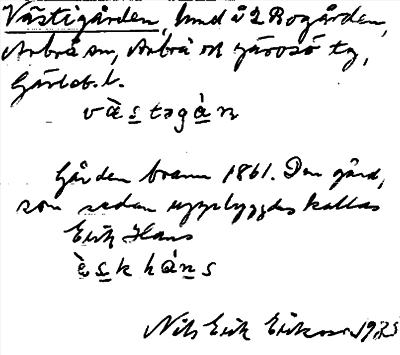 Västigården, hmd å 2 Rogården,
Arbrå sn, Arbrå och Järvsö tg,
Gävleb. l.
v ä̀ s təg å̀ n
Gården brann 1861. Den gård,
som sedan uppbyggdes kallas
Erik Hans
è s k h à n s
Nils Erik Eriksson 1935